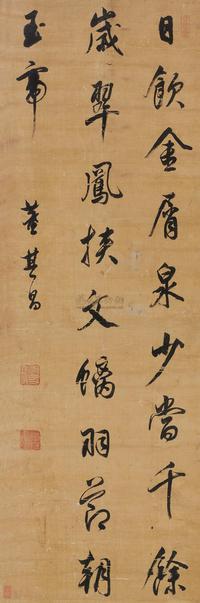 日飲金屑泉少當千餘
歲翠鳳扶文螭羽節朝
玉帝
董其昌